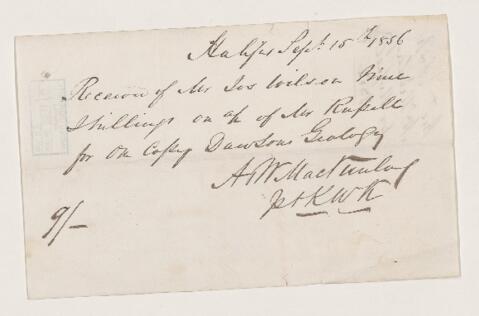 Halifax Sept. 15th 1856
Received of Mr Jos Wilson Nine
Shillings on a/c of Mr Russell
for one Copy Dawsons Geology
A & W MacKinlay
9/-